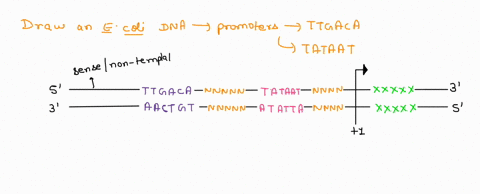 Draw an E.coli DNA → promoters → TTGACA
↳ TATAAT
sense/non-templ
5' TTGACA-NNNNN-TATAAT-NNNN XXXXX 3'
3' AACTGT-NNNNN-ATATTA-NNNN XXXXX 5'
+1